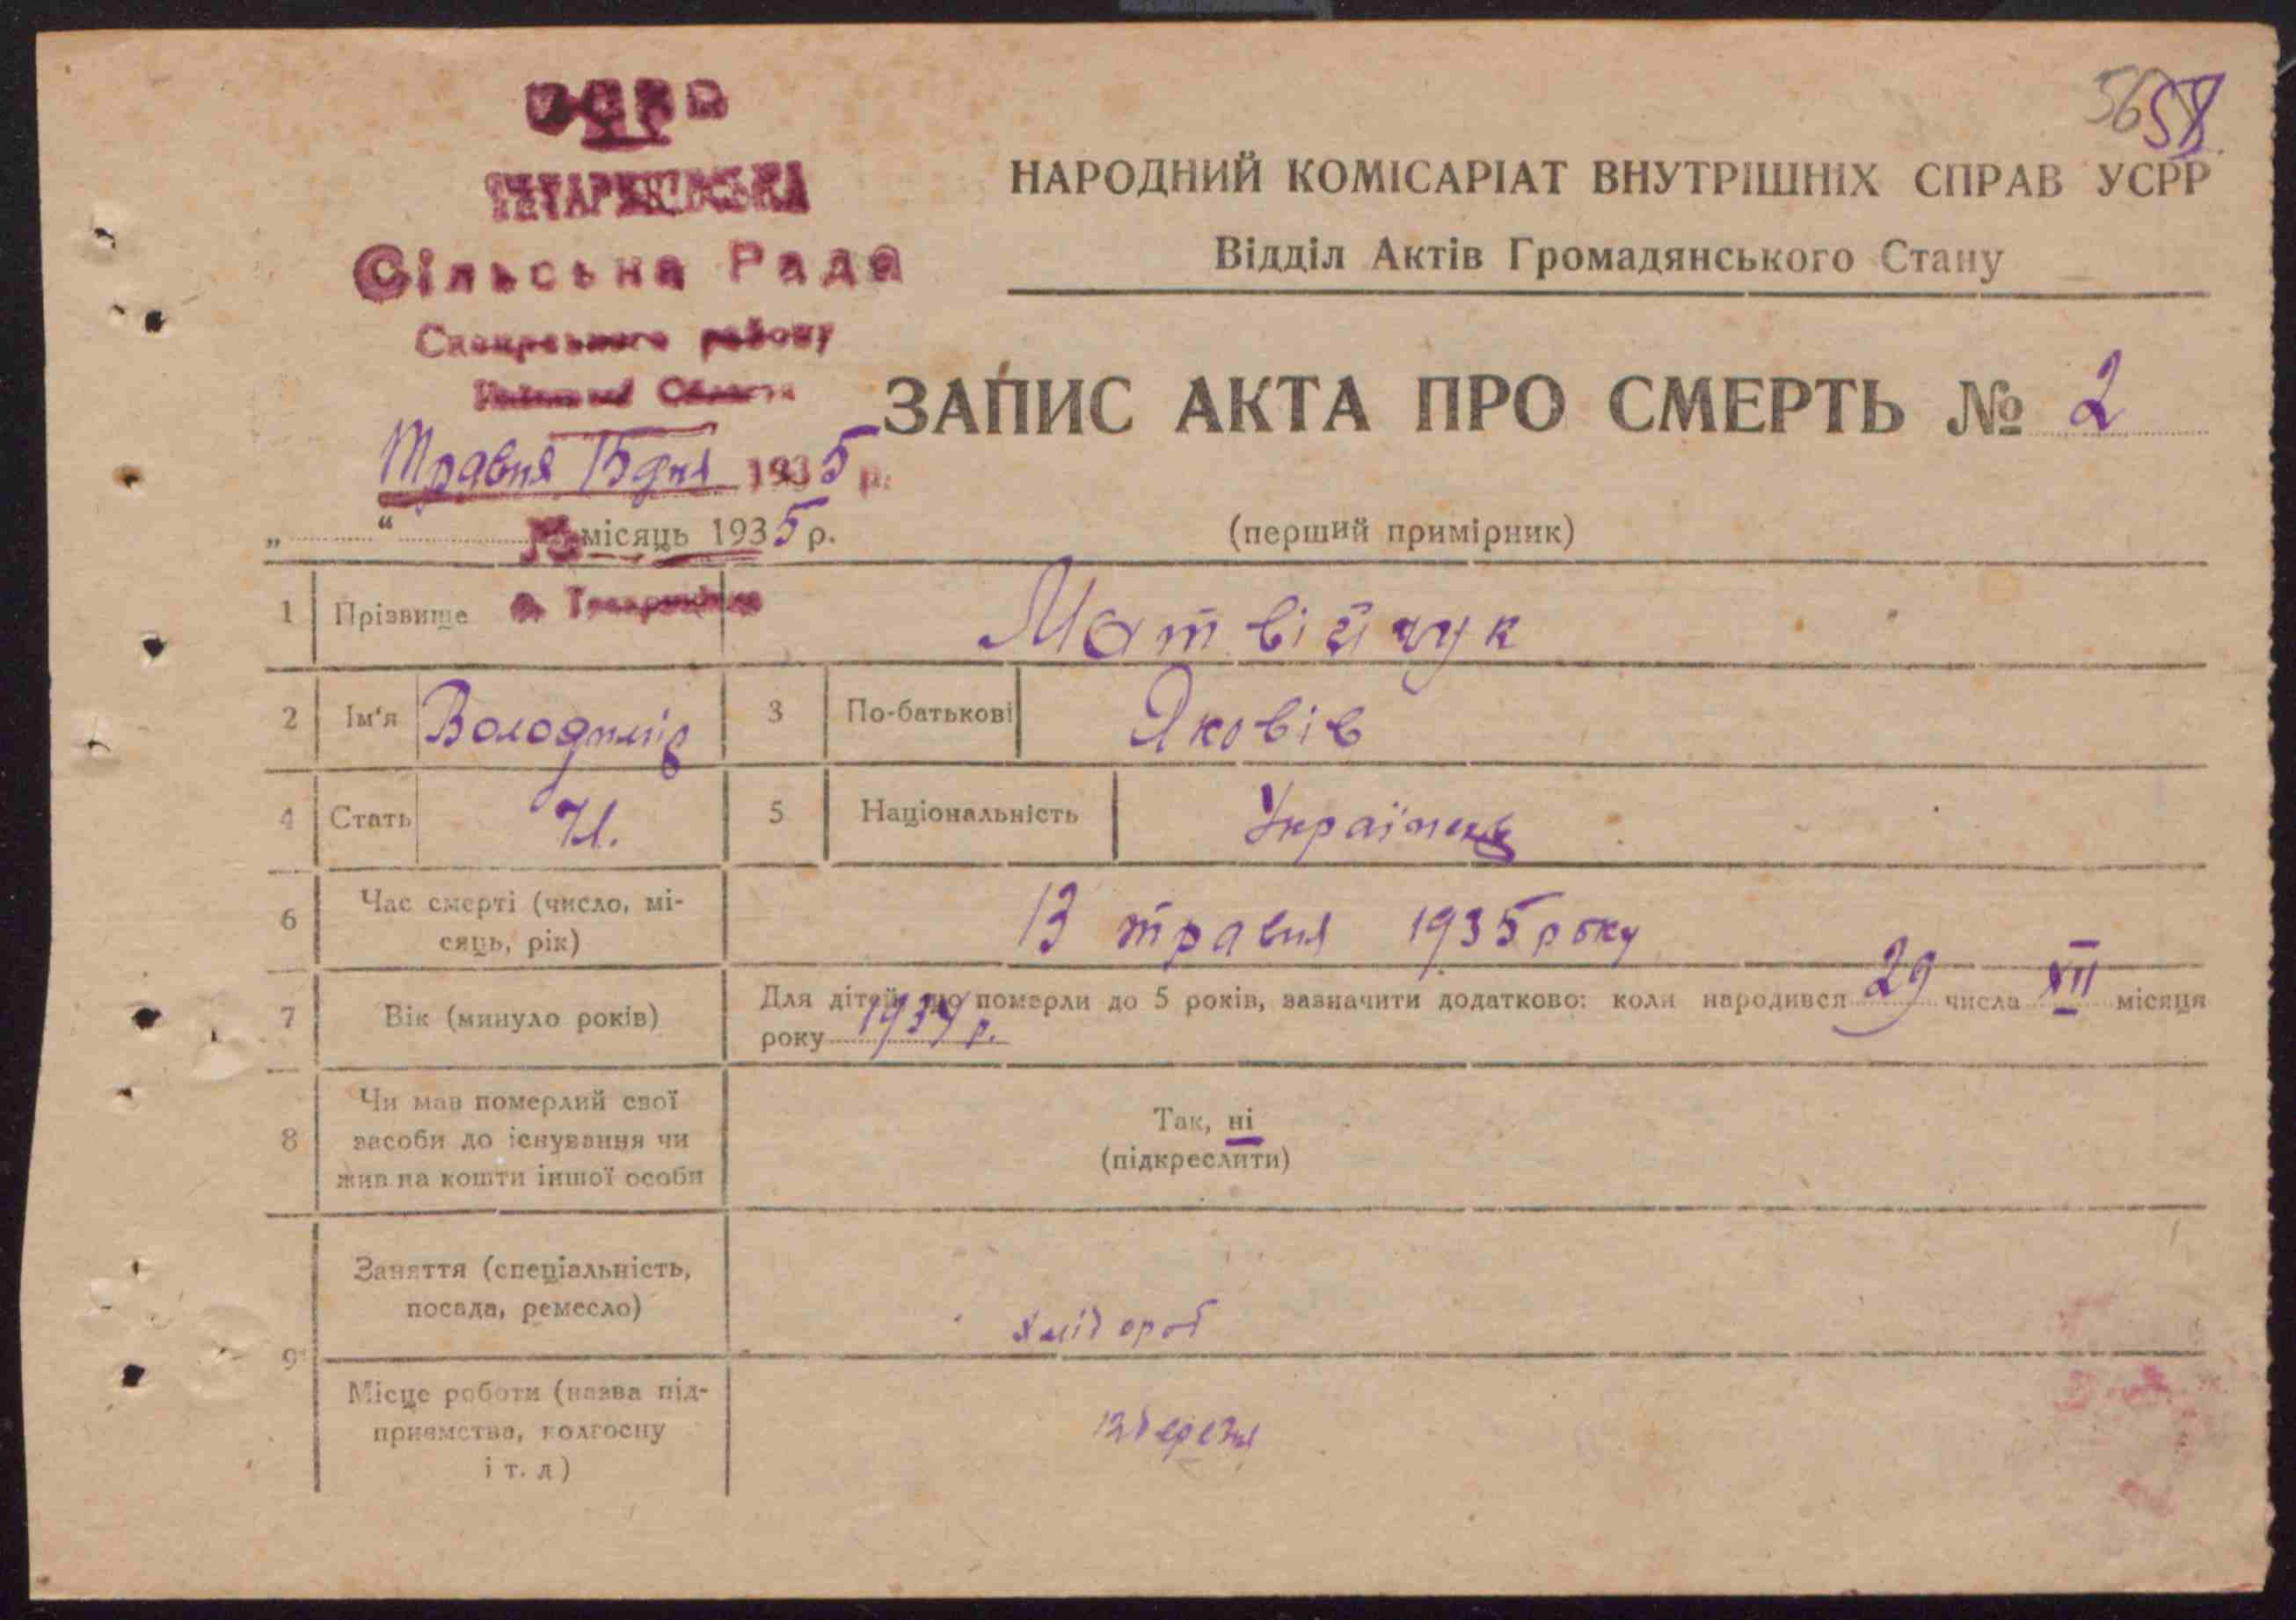 УСРР
ТАТАРИНІВСЬКА
Сільська Рада
Сквирського району
Київської Області
Травня 15 дня 1935 р.
56 58
НАРОДНИЙ КОМІСАРІАТ ВНУТРІШНІХ СПРАВ УСРР
Відділ Актів Громадянського Стану
ЗАПИС АКТА ПРО СМЕРТЬ № 2
„ “ місяць 1935 р.
(перший примірник)
1 Прізвище Матвійчук
2 Ім'я Володимір 3 По-батькові Яковів
4 Стать Ч. 5 Національність Українець
6 Час смерті (число, мі-
сяць, рік) 13 травня 1935 року
7 Вік (минуло років) Для дітей, що померли до 5 років, зазначити додатково: коли народився 29 числа XII місяця
року 1934 р.
8 Чи мав померлий свої
засоби до існування чи
жив на кошти іншої особи
Так, ні
(підкреслити)
9 Заняття (спеціальність,
посада, ремесло) хлібороб
Місце роботи (назва під-
приємства, колгоспу
і т. д.)